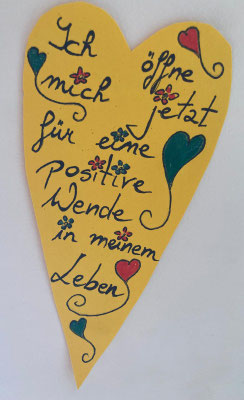 Ich öffne
mich jetzt
für eine
positive
Wende
in meinem
Leben